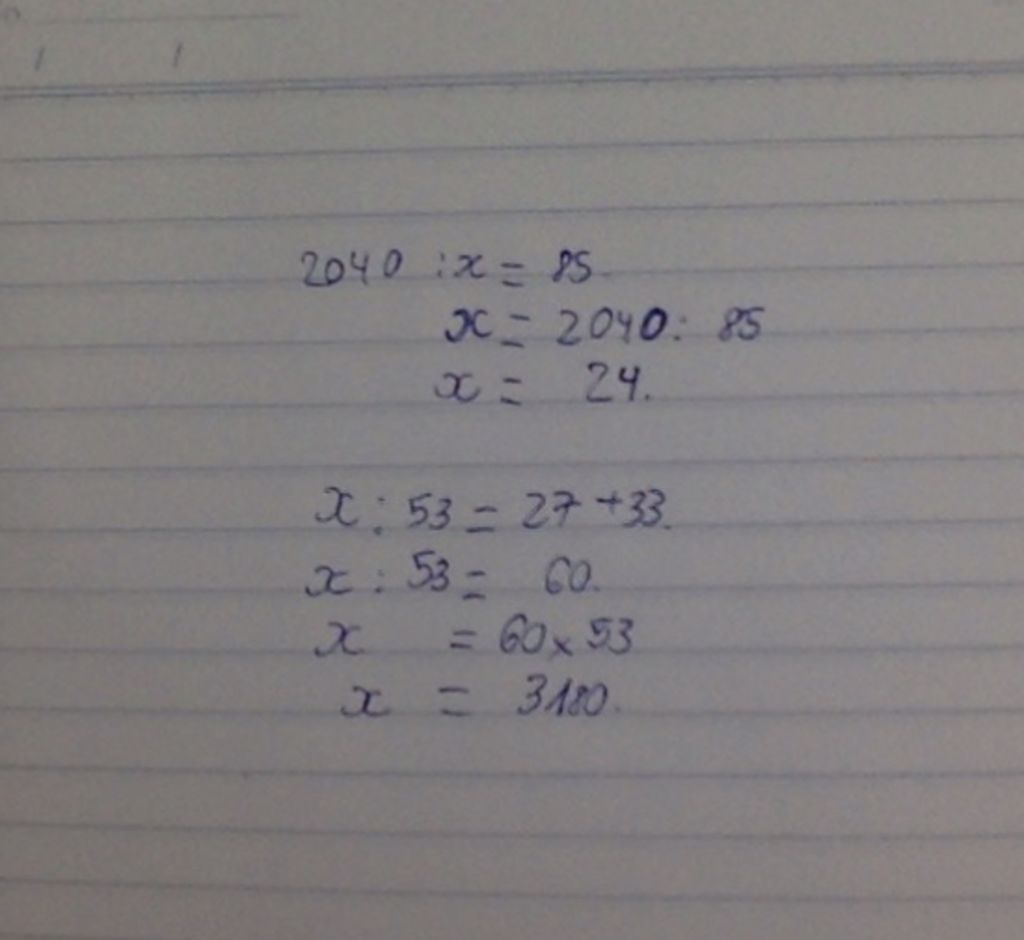 2040 : x = 85
x = 2040 : 85
x = 24.
x : 53 = 27 + 33.
x : 53 = 60.
x = 60 x 53
x = 3180.